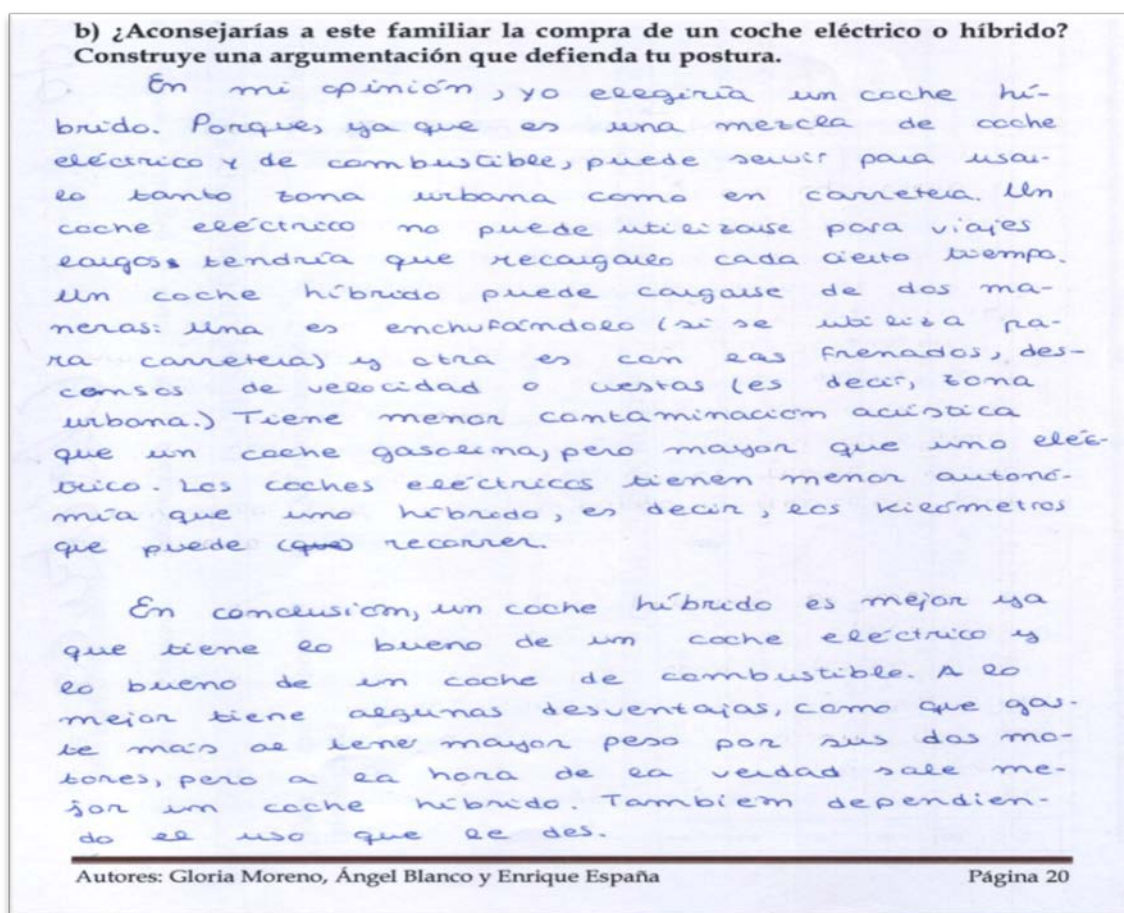 b) ¿Aconsejarías a este familiar la compra de un coche eléctrico o híbrido?
Construye una argumentación que defienda tu postura.
En mi opinión, yo elegiría un coche hí-
brido. Porque, ya que es una mezcla de coche
eléctrico y de combustible, puede servir para usar-
lo tanto zona urbana como en carretera. Un
coche eléctrico no puede utilizarse para viajes
largos, tendría que recargarlo cada cierto tiempo.
Un coche híbrido puede cargarse de dos ma-
neras: Una es enchufándolo (si se utiliza pa-
ra carretera) y otra es con las frenados, des-
cansos de velocidad o cuestas (es decir, zona
urbana.) Tiene menor contaminación acústica
que un coche gasolina, pero mayor que uno eléc-
trico Los coches eléctricos tienen menor autonó-
mía que uno híbrido, es decir, los kilómetros
que puede (que) recorrer.
En conclusión, un coche híbrido es mejor ya
que tiene lo bueno de un coche eléctrico y
lo bueno de un coche de combustible. A lo
mejor tiene algunas desventajas, como que gas-
te más al tener mayor peso por sus dos mo-
tores, pero a la hora de la verdad sale me-
jor un coche híbrido. También dependien-
do el uso que le des.
Autores: Gloria Moreno, Ángel Blanco y Enrique España Página 20